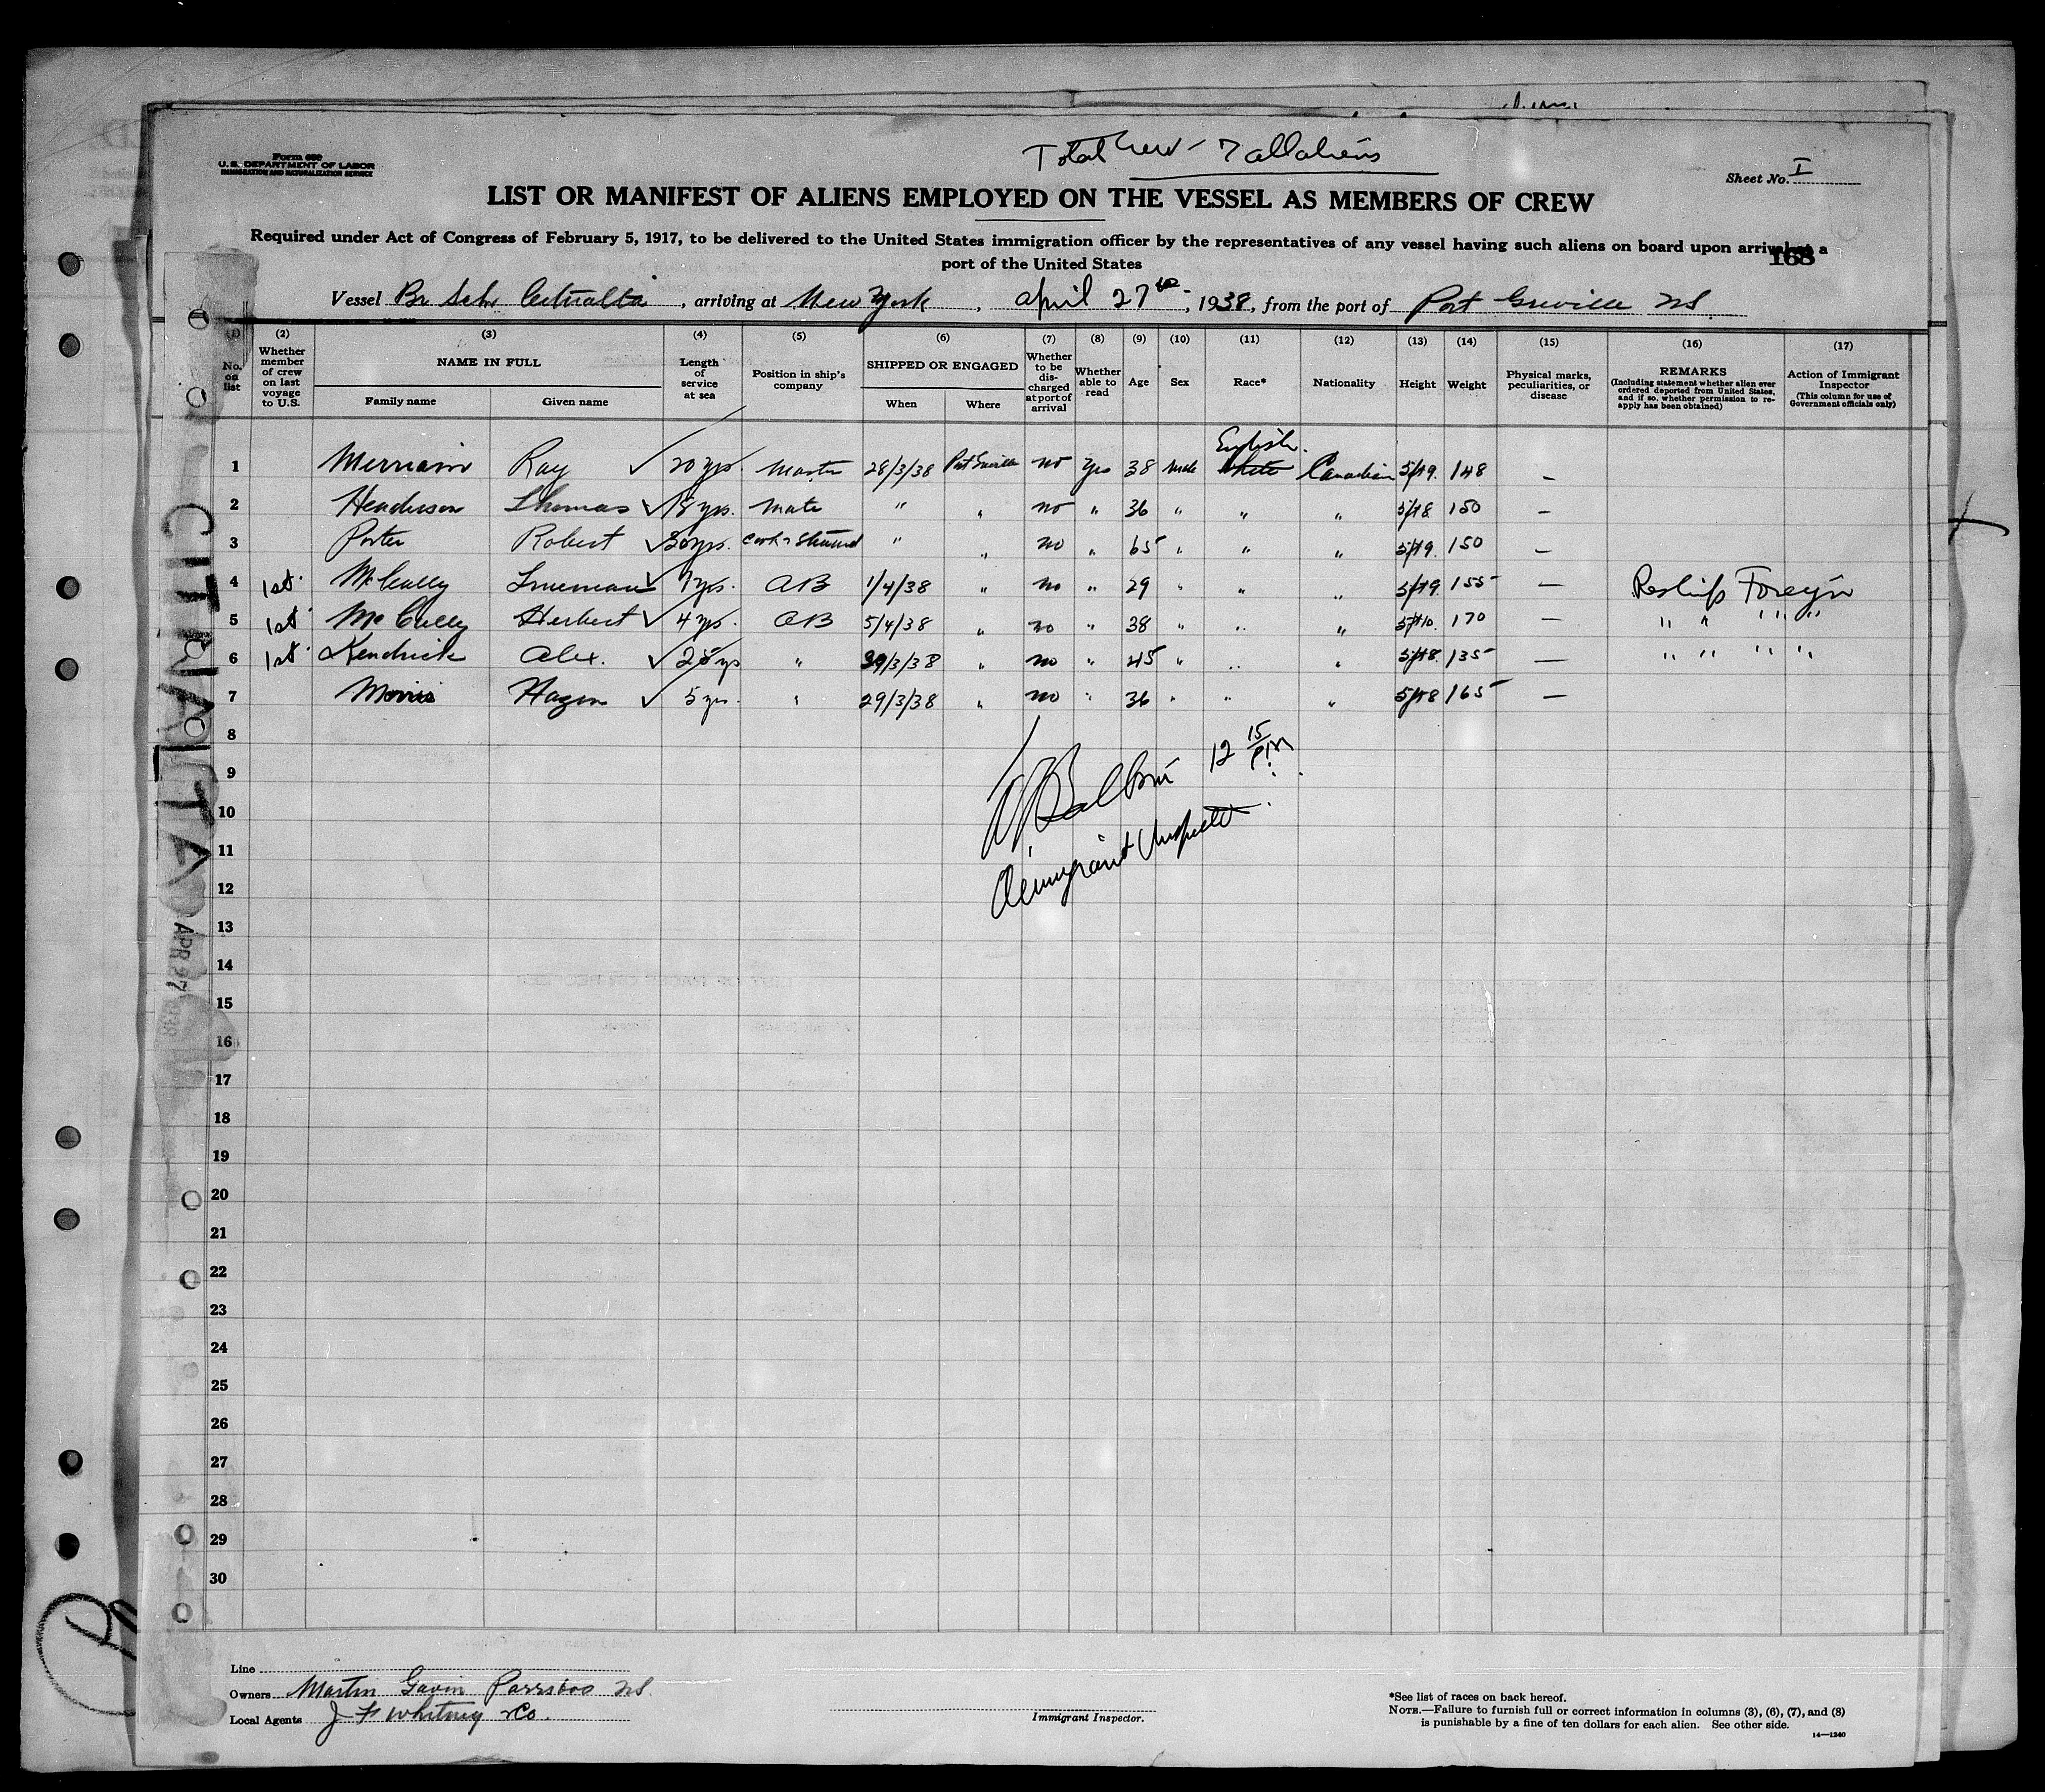 Total Crew - 7 all aliens
Form 680
U. S. DEPARTMENT OF LABOR
IMMIGRATION AND NATURALIZATION SERVICE
Sheet No. I
LIST OR MANIFEST OF ALIENS EMPLOYED ON THE VESSEL AS MEMBERS OF CREW
Required under Act of Congress of February 5, 1917, to be delivered to the United States immigration officer by the representatives of any vessel having such aliens on board upon arrival at a
port of the United States
168
Vessel Br Schr Citnalta, arriving at New York, april 27th, 1938, from the port of Port Greville NS.
(1) No. on list
(2) Whether member of crew on last voyage to U.S.
(3) NAME IN FULL Family name Given name
(4) Length of service at sea
(5) Position in ship's company
(6) SHIPPED OR ENGAGED When Where
(7) Whether to be discharged at port of arrival
(8) Whether able to read
(9) Age
(10) Sex
(11) Race*
(12) Nationality
(13) Height
(14) Weight
(15) Physical marks, peculiarities, or disease
(16) REMARKS (Including statement whether alien ever ordered deported from United States, and if so, whether permission to reapply has been obtained)
(17) Action of Immigrant Inspector (This column for use of Government officials only)
English
1 Merriam Ray ✓ 20 yrs. Master 28/3/38 Port Greville no Yes 38 Male White Canadian 5ft 9. 148 —
2 Henderson Thomas ✓ 18 yrs. Mate " " no " 36 " " " 5ft 8 150 —
3 Porter Robert ✓ 30 yrs. Cook & Steward " " no " 65 " " " 5ft 9. 150 —
4 1st McCully Trueman ✓ 7 yrs. AB 1/4/38 " no " 29 " " " 5ft 9 155 — Reships Foreign
5 1st McCully Herbert ✓ 4 yrs. AB 5/4/38 " no " 38 " " " 5ft 10. 170 — " " " "
6 1st Kendrick Alex. ✓ 25 yrs " 30/3/38 " no " 45 " " " 5ft 8. 135 — " " " "
7 Morris Hazen ✓ 5 yrs. " 29/3/38 " no " 36 " " " 5ft 8 165 —
8
9
10
11
12
13
14
15
16
17
18
19
20
21
22
23
24
25
26
27
28
29
30
12 15 P.M.
Immigrant Inspector
CITNALTA
APR 27 1938
Line
Owners Martin Gavin Parrsboro NS.
Local Agents J F Whitney & Co.
Immigrant Inspector.
*See list of races on back hereof.
NOTE.—Failure to furnish full or correct information in columns (3), (6), (7), and (8)
is punishable by a fine of ten dollars for each alien. See other side.
14—1240